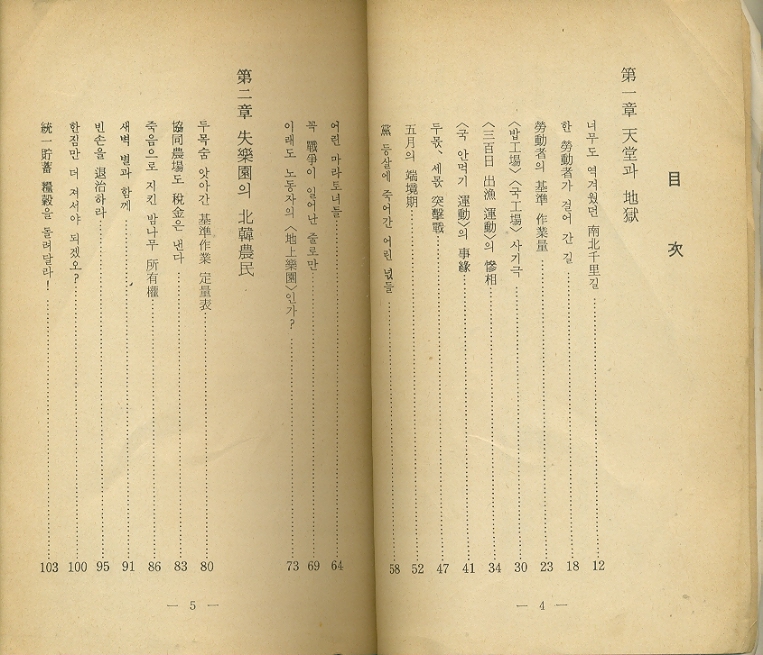 目 次
第一章 天堂과 地獄
너무도 역겨웠던 南北千里길 12
한 勞動者가 걸어 간 길 18
勞動者의 基準 作業量 23
〈밥工場〉〈국工場〉 사기극 30
〈三百日 出漁 運動〉의 慘相 34
〈국 안먹기 運動〉의 事緣 41
두몫, 세몫 突擊戰 47
五月의 端境期 52
黨 등살에 죽어간 어린 넋들 58
— 4 —
어린 마라토너들 64
꼭 戰爭이 일어난 줄로만 69
이래도 노동자의 〈地上樂園〉인가? 73
第二章 失樂園의 北韓農民
두목숨 앗아간 基準作業 定量表 80
協同農場도 稅金은 낸다 83
죽음으로 지킨 밤나무 所有權 86
새벽 별과 함께 91
빈손을 退治하라 95
한짐만 더 져서야 되겠오? 100
統一貯蓄 糧穀을 돌려달라! 103
— 5 —